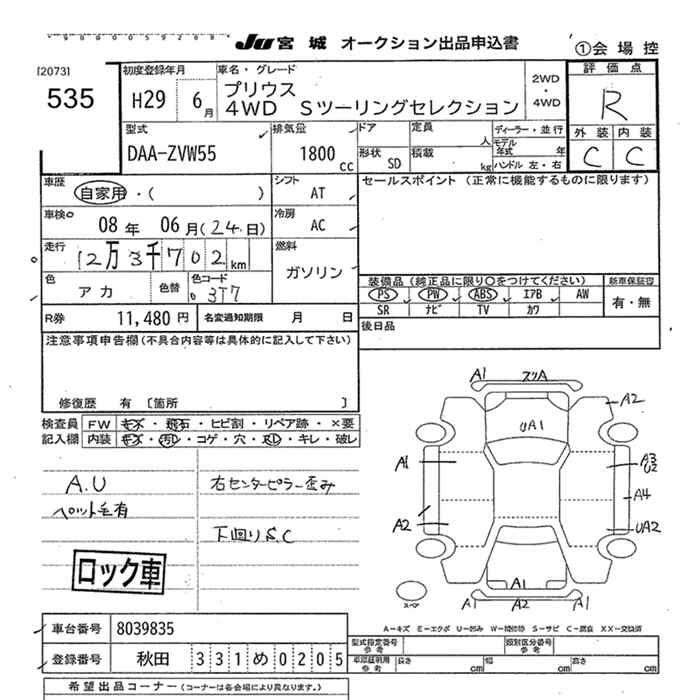 JU 宮城 オークション出品申込書
①会場控
[2073]
535
初度登録年月
H29 6月
車名・グレード
プリウス
4WD Sツーリングセレクション
2WD
・
4WD
評価点
R
外装 内装
C C
型式
DAA-ZVW55
排気量
1800 cc
ドア
形状 SD
定員 人
積載 kg
ディーラー・並行
モデル年式 年
ハンドル 左・右
車歴
自家用・( )
シフト
AT
車検
08年 06月(24日)
冷房
AC
走行
12万3千702km
燃料
ガソリン
色
アカ
色替
色コード
3T7
R券 11,480円
名変通知期限 月 日
セールスポイント (正常に機能するものに限ります)
装備品(純正品に限り○をつけてください)
PS PW ABS エアB AW
SR ナビ TV カワ
新車保証書
有・無
後日品
注意事項申告欄(不具合内容等は具体的に記入して下さい)
修復歴 有 [箇所 ]
検査員記入欄
FW キズ・飛石・ヒビ割・リペア跡・×要
内装 キズ・汚レ・コゲ・穴・スレ・キレ・破レ
A.U
ペット毛有
右センターピラー歪み
下回りS.C
ロック車
A1 スリA
A2
UA1
A1
A3
U2
A4
A2
UA2
A1
A1 A2
スペア
A-キズ E-エクボ U-凹み W-補修跡 S-サビ C-腐食 XX-交換済
車台番号 8039835
登録番号 秋田 331 め 0205
型式指定番号
参考
類別区分番号
参考
車庫証明用
参考
長さ cm 幅 cm 高さ cm
希望出品コーナー(コーナーは各会場により異なります。)